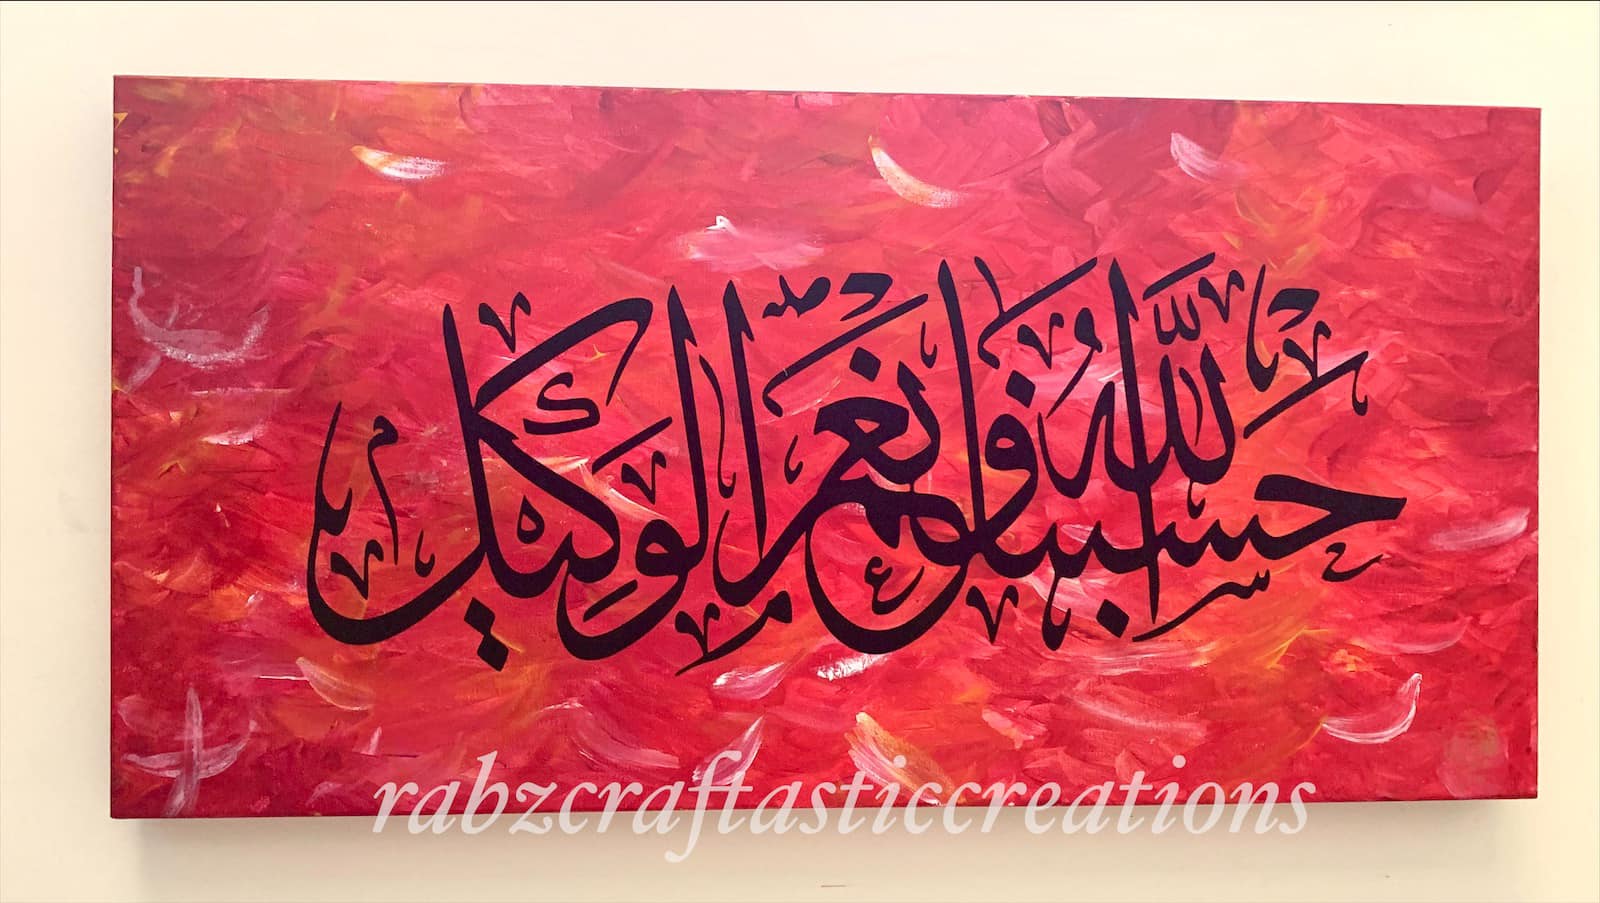 حسبنا الله ونعم الوكيل
rabzcraftasticcreations